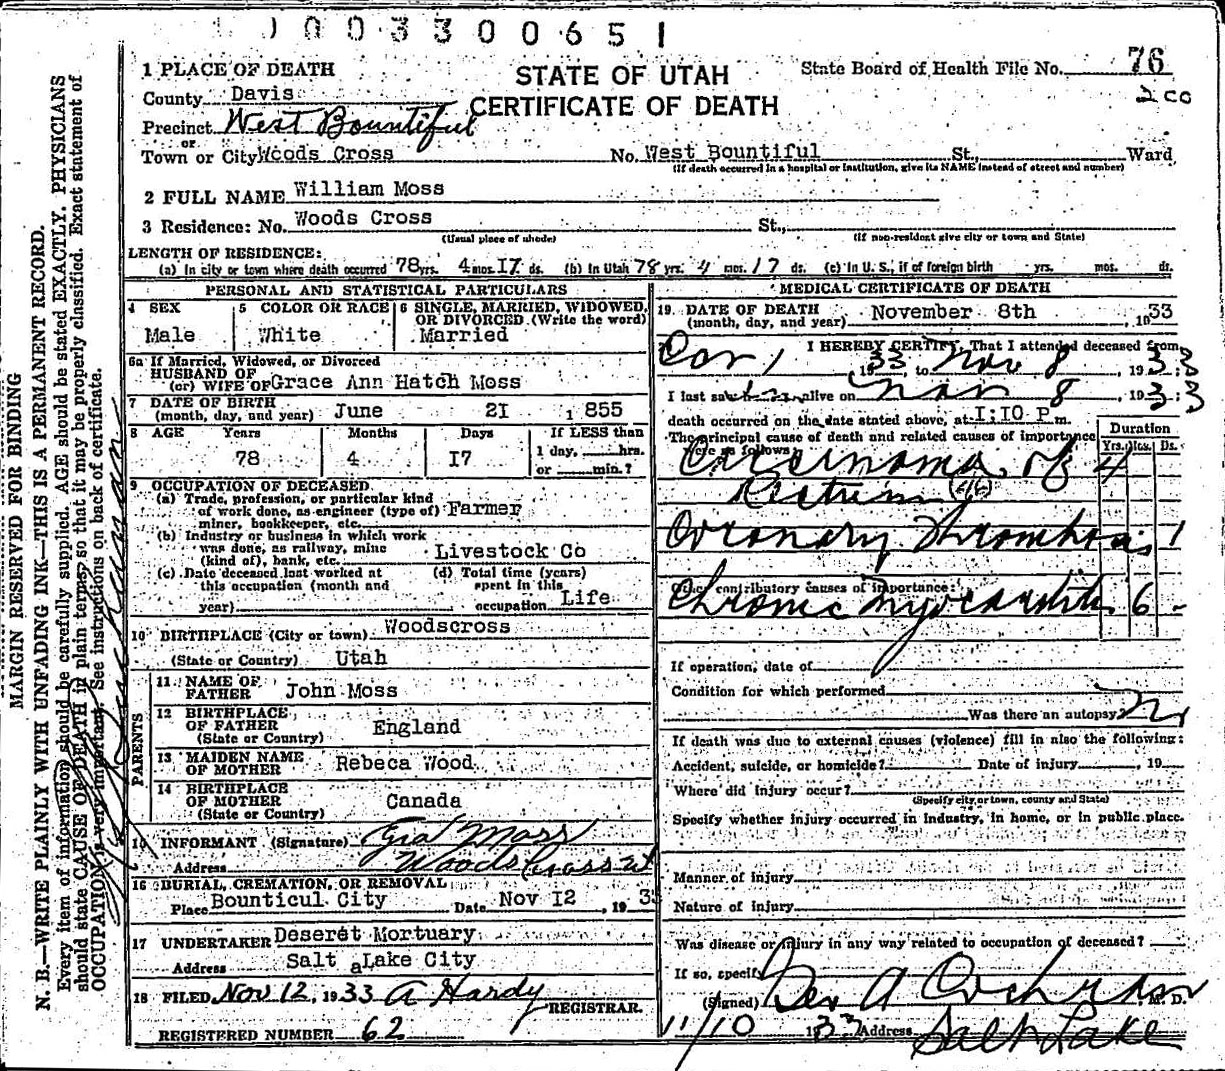 1 0 0 3 3 0 0 6 5 1
1 PLACE OF DEATH
STATE OF UTAH
CERTIFICATE OF DEATH
State Board of Health File No. 76
2 co
County Davis
Precinct West Bountiful
or
Town or City Woods Cross No. West Bountiful St., Ward
(If death occurred in a hospital or institution, give its NAME instead of street and number)
2 FULL NAME William Moss
3 Residence: No. Woods Cross St.,
(Usual place of abode) (If non-resident give city or town and State)
LENGTH OF RESIDENCE:
(a) In city or town where death occurred 78 yrs. 4 mos. 17 ds. (b) In Utah 78 yrs. 4 mos. 17 ds. (c) In U. S., if of foreign birth yrs. mos. ds.
PERSONAL AND STATISTICAL PARTICULARS
4 SEX
Male
5 COLOR OR RACE
White
6 SINGLE, MARRIED, WIDOWED,
OR DIVORCED (Write the word)
Married
6a If Married, Widowed, or Divorced
HUSBAND OF
(or) WIFE OF Grace Ann Hatch Moss
7 DATE OF BIRTH
(month, day, and year) June 21 1855
8 AGE Years Months Days If LESS than
78 4 17 1 day, hrs.
or min.?
9 OCCUPATION OF DECEASED
(a) Trade, profession, or particular kind
of work done, as engineer (type of) Farmer
miner, bookkeeper, etc.
(b) Industry or business in which work
was done, as railway, mine
(kind of), bank, etc. Livestock Co
(c) Date deceased last worked at
this occupation (month and
year)
(d) Total time (years)
spent in this
occupation Life
10 BIRTHPLACE (City or town) Woodscross
(State or Country) Utah
PARENTS
11 NAME OF
FATHER John Moss
12 BIRTHPLACE
OF FATHER England
(State or Country)
13 MAIDEN NAME
OF MOTHER Rebeca Wood
14 BIRTHPLACE
OF MOTHER Canada
(State or Country)
15 INFORMANT (Signature) Moss
Address Woods Cross Ut
16 BURIAL, CREMATION, OR REMOVAL
Place Bounticul City Date Nov 12, 1933
17 UNDERTAKER Deseret Mortuary
Address Salt aLake City
18 FILED Nov 12, 1933 A Hardy
REGISTRAR.
REGISTERED NUMBER 62
MEDICAL CERTIFICATE OF DEATH
19 DATE OF DEATH
(month, day, and year) November 8th, 1933
I HEREBY CERTIFY, That I attended deceased from
1933 to Nov 8, 1933;
I last saw him alive on Nov 8, 1933;
death occurred on the date stated above, at 1:10 P m.
The principal cause of death and related causes of importance
were as follows:
Duration
Yrs. Mos. Ds.
Carcinoma of 4
Rectum
Coronary Thrombosis 1
Other contributory causes of importance:
Chronic Myocarditis 6 -
If operation, date of
Condition for which performed
Was there an autopsy? No
If death was due to external causes (violence) fill in also the following:
Accident, suicide, or homicide? Date of injury, 19
Where did injury occur?
(Specify city or town, county and State)
Specify whether injury occurred in industry, in home, or in public place.
Manner of injury
Nature of injury
Was disease or injury in any way related to occupation of deceased?
If so, specify
(Signed) Geo A Cochran M. D.
11/10 1933 Address Salt Lake
MARGIN RESERVED FOR BINDING
N. B.—WRITE PLAINLY WITH UNFADING INK—THIS IS A PERMANENT RECORD.
Every item of information should be carefully supplied. AGE should be stated EXACTLY. PHYSICIANS
should state CAUSE OF DEATH in plain terms, so that it may be properly classified. Exact statement of
OCCUPATION is very important. See instructions on back of certificate.